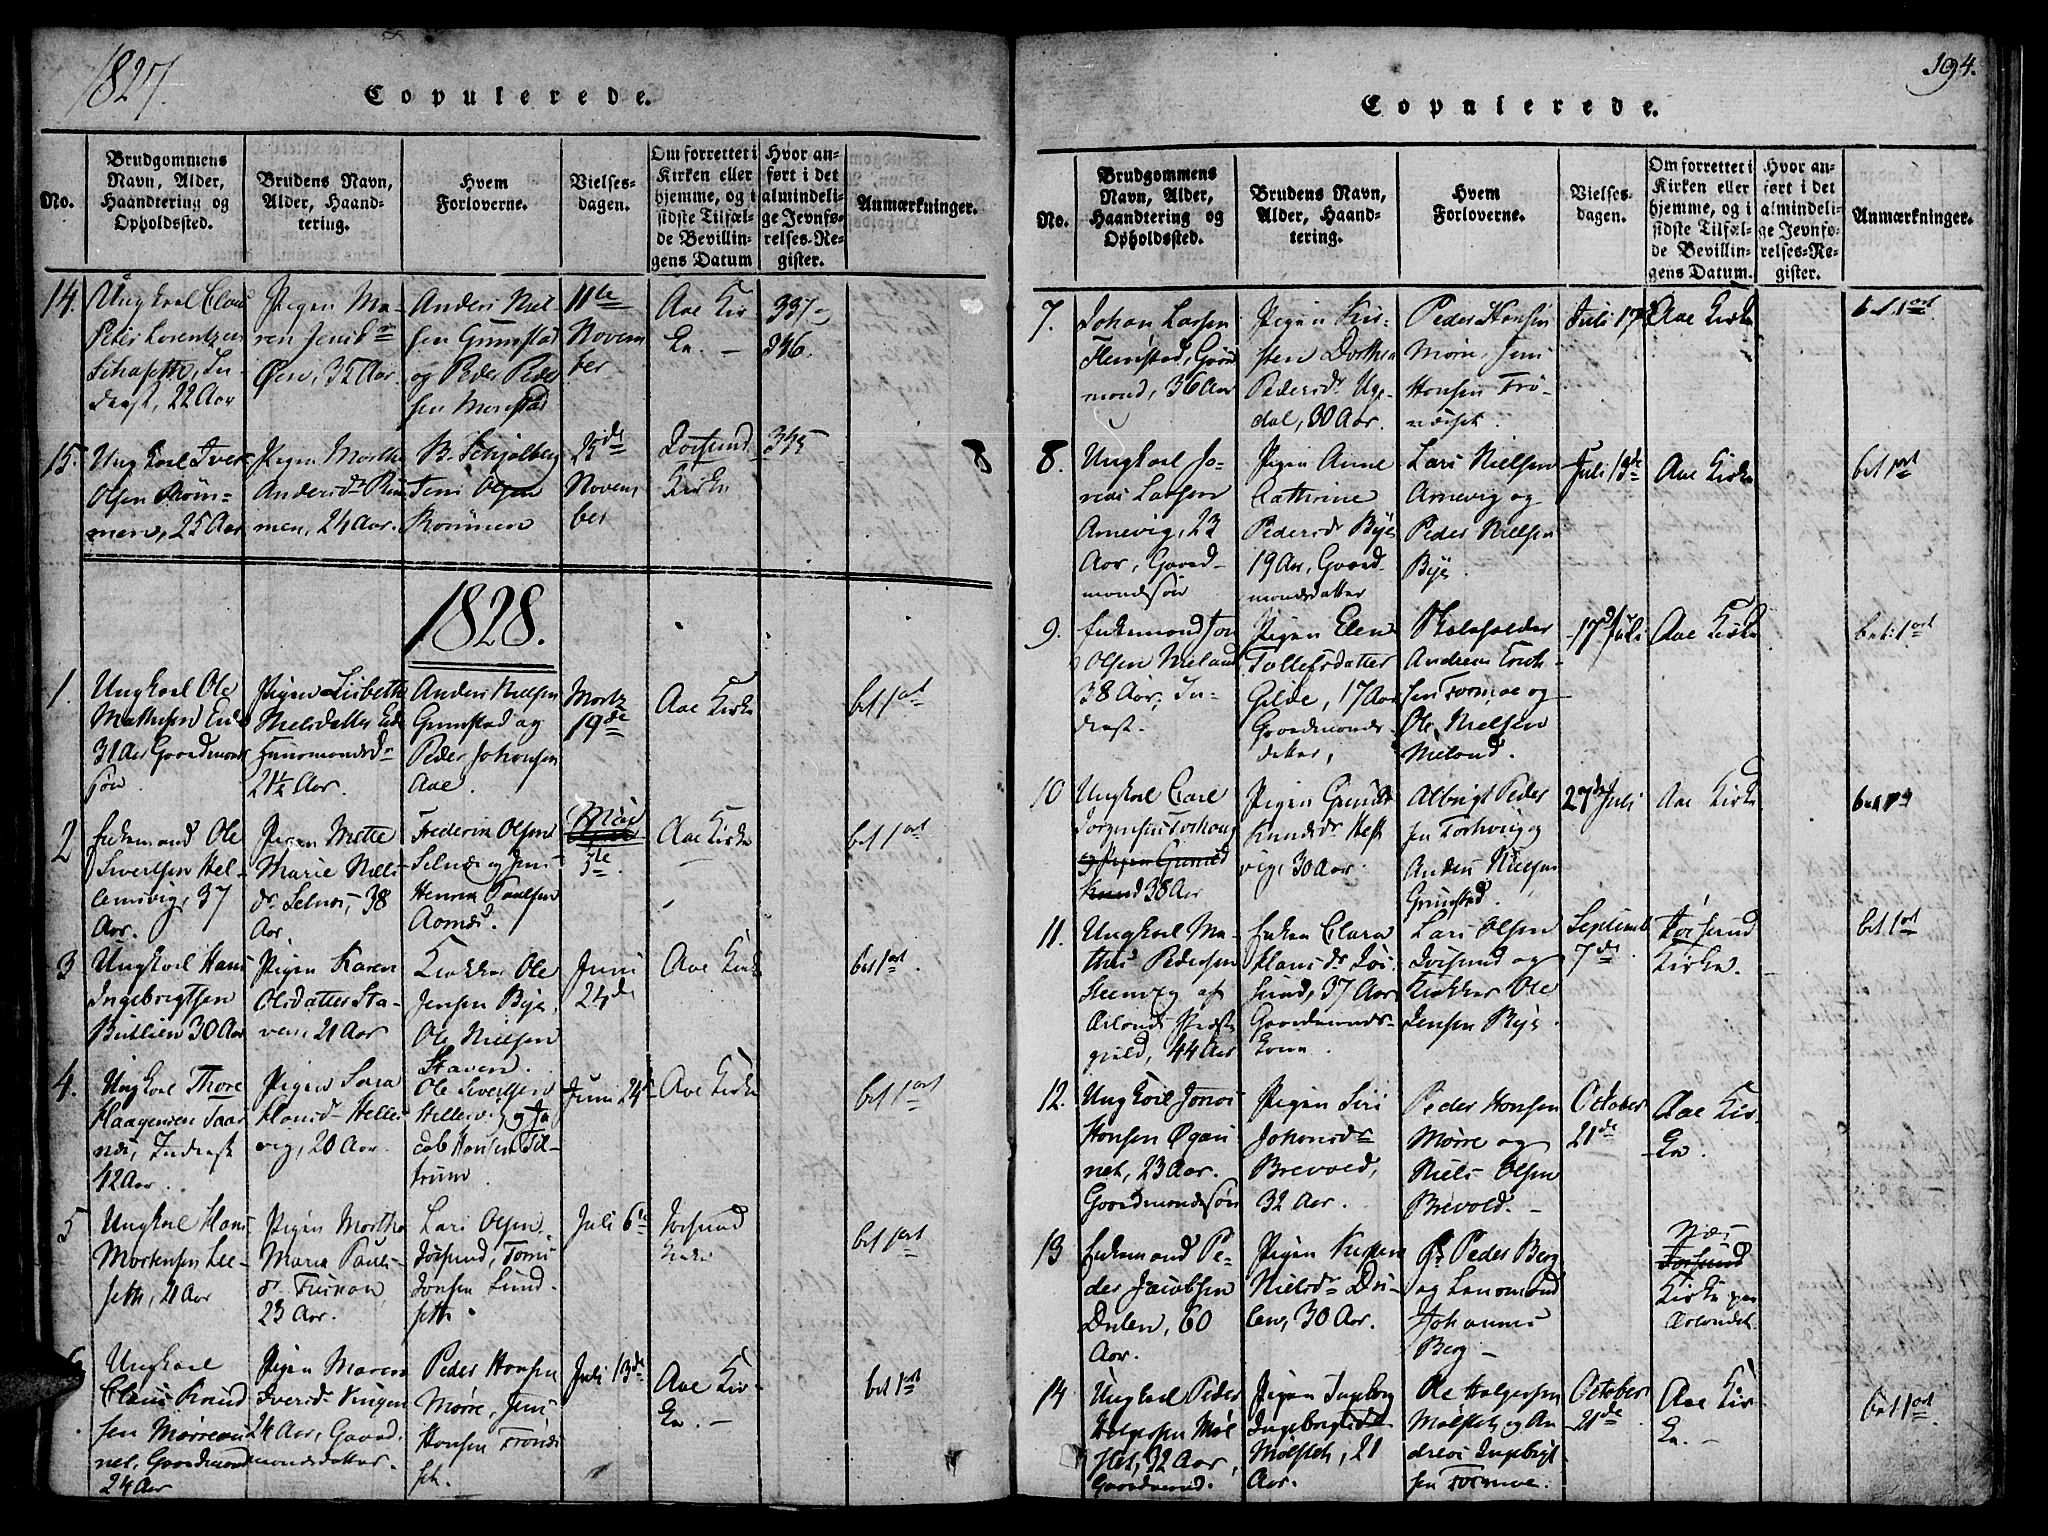 1827.
Copulerede.
No.
Brudgommens
Navn, Alder,
Haandtering og
Opholdssted.
Brudens Navn,
Alder, Haand-
tering.
Hvem
Forloverne.
Vielses-
dagen.
Om forrettet i
Kirken eller
hjemme, og i
sidste Tilfæl-
de Bevillin-
gens Datum
Hvor an-
ført i det
almindeli-
ge Jevnfø-
relses-Re-
gister.
Anmærkninger.
14.
Ungkarl Claus
Peter Lorentzen
22 Aar
Pigen Ma-
ren Jensdr
Øien, 35 Aar.
Anders Niel-
sen Grimstad
og Peder Peder
sen
11te
Novem
ber
Aae Kir
ke. –
337 og
346.
15.
Ungkarl Iver
Olsen Røm-
men, 25 Aar
Pigen Marthe
Andersdr Røm
men, 24 Aar.
B. Schjølberg
Jens Olsen
Rømmen
25de
Novem
ber
Jøssund
Kirke
345
1828.
1.
Ungkarl Ole
Mathisen
31 Aar Gaardmands
søn
Pigen Lisbeth
Nielsdatter
Huusmandsdr
21½ Aar.
Anders Nielsen
Grimstad og
Peder Johansen
Aae.
Marts
19de
Aae Kirke
bet 1ort
2
Enkemand Ole
Sivertsen Hel-
lemsvig, 37
Aar.
Pigen Mette
Marie Niels
dr Selnes, 38
Aar
Frederik Olsen
Selnes og Jens
Henrik Paulsen
Aarnes.
Mai
5te
Aae Kirke
bet 1ort
3
Ungkarl Hans
Ingebrigtsen
30 Aar
Pigen Karen
Olsdatter Sta-
ven, 21 Aar
Klokker Ole
Jensen Bye,
Ole Nielsen
Staven.
Juni
24de
Aae Kirke
bet 1ort.
4.
Ungkarl Thore
Haagensen
42 Aar.
Pigen Sara
Hansdr Helles
vig, 20 Aar.
Ole Sivertsen
Hellesvig, og Ja
cob Hansen Til-
trum.
Juni 24de
Aae Kirke
bet 1ort
5
Ungkarl Hans
Mortensen Lee-
seth, 21 Aar
Pigen Marthe
Maria Pauls-
dr
23 Aar.
Lars Olsen
Jøssund, Tomas
Jonsen Lund-
seth.
Juli 6te
Jossund
Kirke
bet 1ort
6
Ungkarl
Claus Knud
sen Mørreau
net, Gaardmand
24 Aar
Pigen Maren
Iversdr Vingen
24 Aar, Gaard
mandsdatter.
Peder Hansen
Mørre, Jens
Hansen Trønd
set.
Juli 13de
Aae Kir-
ke. –
bet 1ort
194.
Copulerede.
No.
Brudgommens
Navn, Alder,
Haandtering og
Opholdssted.
Brudens Navn,
Alder, Haand-
tering.
Hvem
Forloverne.
Vielses-
dagen.
Om forrettet i
Kirken eller
hjemme, og i
sidste Tilfæl-
de Bevillin-
gens Datum.
Hvor an-
ført i det
almindeli-
ge Jevnfø-
relses-Re-
gister.
Anmærkninger.
7.
Johan Larsen
Flemstad, Gaard
mand, 36 Aar
Pigen Kir-
sten Dorthea
Pedersdr Uge-
dal, 30 Aar.
Peder Hansen
Mørre, Jens
Hansen Trø-
ndset.
Juli 17de
Aae Kirke
bet. 1ort
8
8.
Ungkarl Jo-
nas Larsen
Arnevig, 23
Aar, Gaard-
mandssøn
Pigen Anne
Cathrine
Pedersdr Bye
19 Aar, Gaard-
mandsdatter
Lars Nielsen
Arnevig og
Peder Nielsen
Bye.
Juli 13de
Aae Kirke
bet 1ort
9.
Enkemand Jon
Olsen Nieland
38 Aar, In-
derst.
Pigen Elen
Tollefsdatter
Gilde, 17 Aar
Gaardmands-
datter,
Andreas
sen Tormoe og
Ole Nielsen
Nieland.
17de Juli
Aae Kirke
bet: 1ort
10
Ungkarl Carl
Jørgensen Torhaug
og Pigen Gunild
Knud 38 Aar
Pigen Gunild
Knudsdr Hest
vig, 30 Aar.
Albrigt Peder
sen Torhvig og
Anders Nielsen
Grimstad.
27de Juli
Aae Kirke
bet 1ort
11.
Ungkarl Ma-
this Pedersen
Steenvig af
Ørlands Præste
gjeld, 44 Aar
Enken Clara
Hansdr Jøs
sund, 37 Aar
Gaardmands-
kone.
Lars Olsen
Jøssund og
Klokker Ole
Jensen Bye.
Septemb
7de
Jøssund
Kirke.
bet 1ort
12.
Ungkarl Jonas
Hansen Øgau
net, 23 Aar.
Gaardmandssøn
Pigen Siri
Johansdr
Brevold,
32 Aar.
Peder Hansen
Mørre og
Niels Olsen
Brevold. –
October
21de
Aae Kir-
ke.
13
Enkemand Pe-
der Jacobsen
Dulen, 60
Aar.
Pigen Kirsten
Nielsdr Du-
len, 30 Aar.
Hr Peder Berg
og Lensmand
Johannes
Berg –
Næs
Jossund
Kirke paa
Ørlandet.
14
Ungkarl Peder
Holgersen Møl
slet, 32 Aar,
Gaardmand.
Pigen Ingeborg
Ingebrigtsdr
Mølslet, 21
Aar.
Ole Holgersen
Mølslet og An
dreas Ingebrigt
sen Tormoe.
October
21de
Aae Kir-
ke. –
bet 1ort